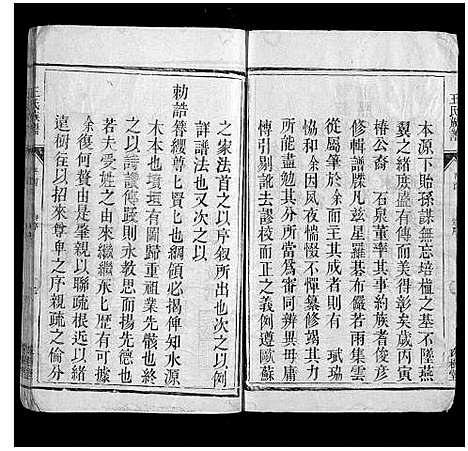 本源下貽孫謀無忘培植之基不墜燕
翼之緒族盛有傳而美得彰矣歲丙寅
椿公裔 石泉董率其事約族者俊彥
修輯譜牒凡茲星羅碁布嚴若雨集雲
從屬肇於余而主其成者則有 賦瑞
協和余因夙夜惴惴不憚纂修竭其力
所能盡勉其分所當然間嘗辨異毋庸
傳引剔訛校而正之義例遵歐蘇
之家法首之以序叙所出也次之以例
詳譜法也又次之以
勅誥貴纓尊匕賢匕也綱領必揭俾知水源
木本也墳塋有圖歸重祖業先骸也終
之以詩讚傳跋則永教思而揚先德也
若夫受姓之由來繼繼承匕歷有可據
余復何贅由是肇親以聯疏根近以緒
遠樹在以招來尊卑之序親疏之倫分
王氏族譜
王氏族譜